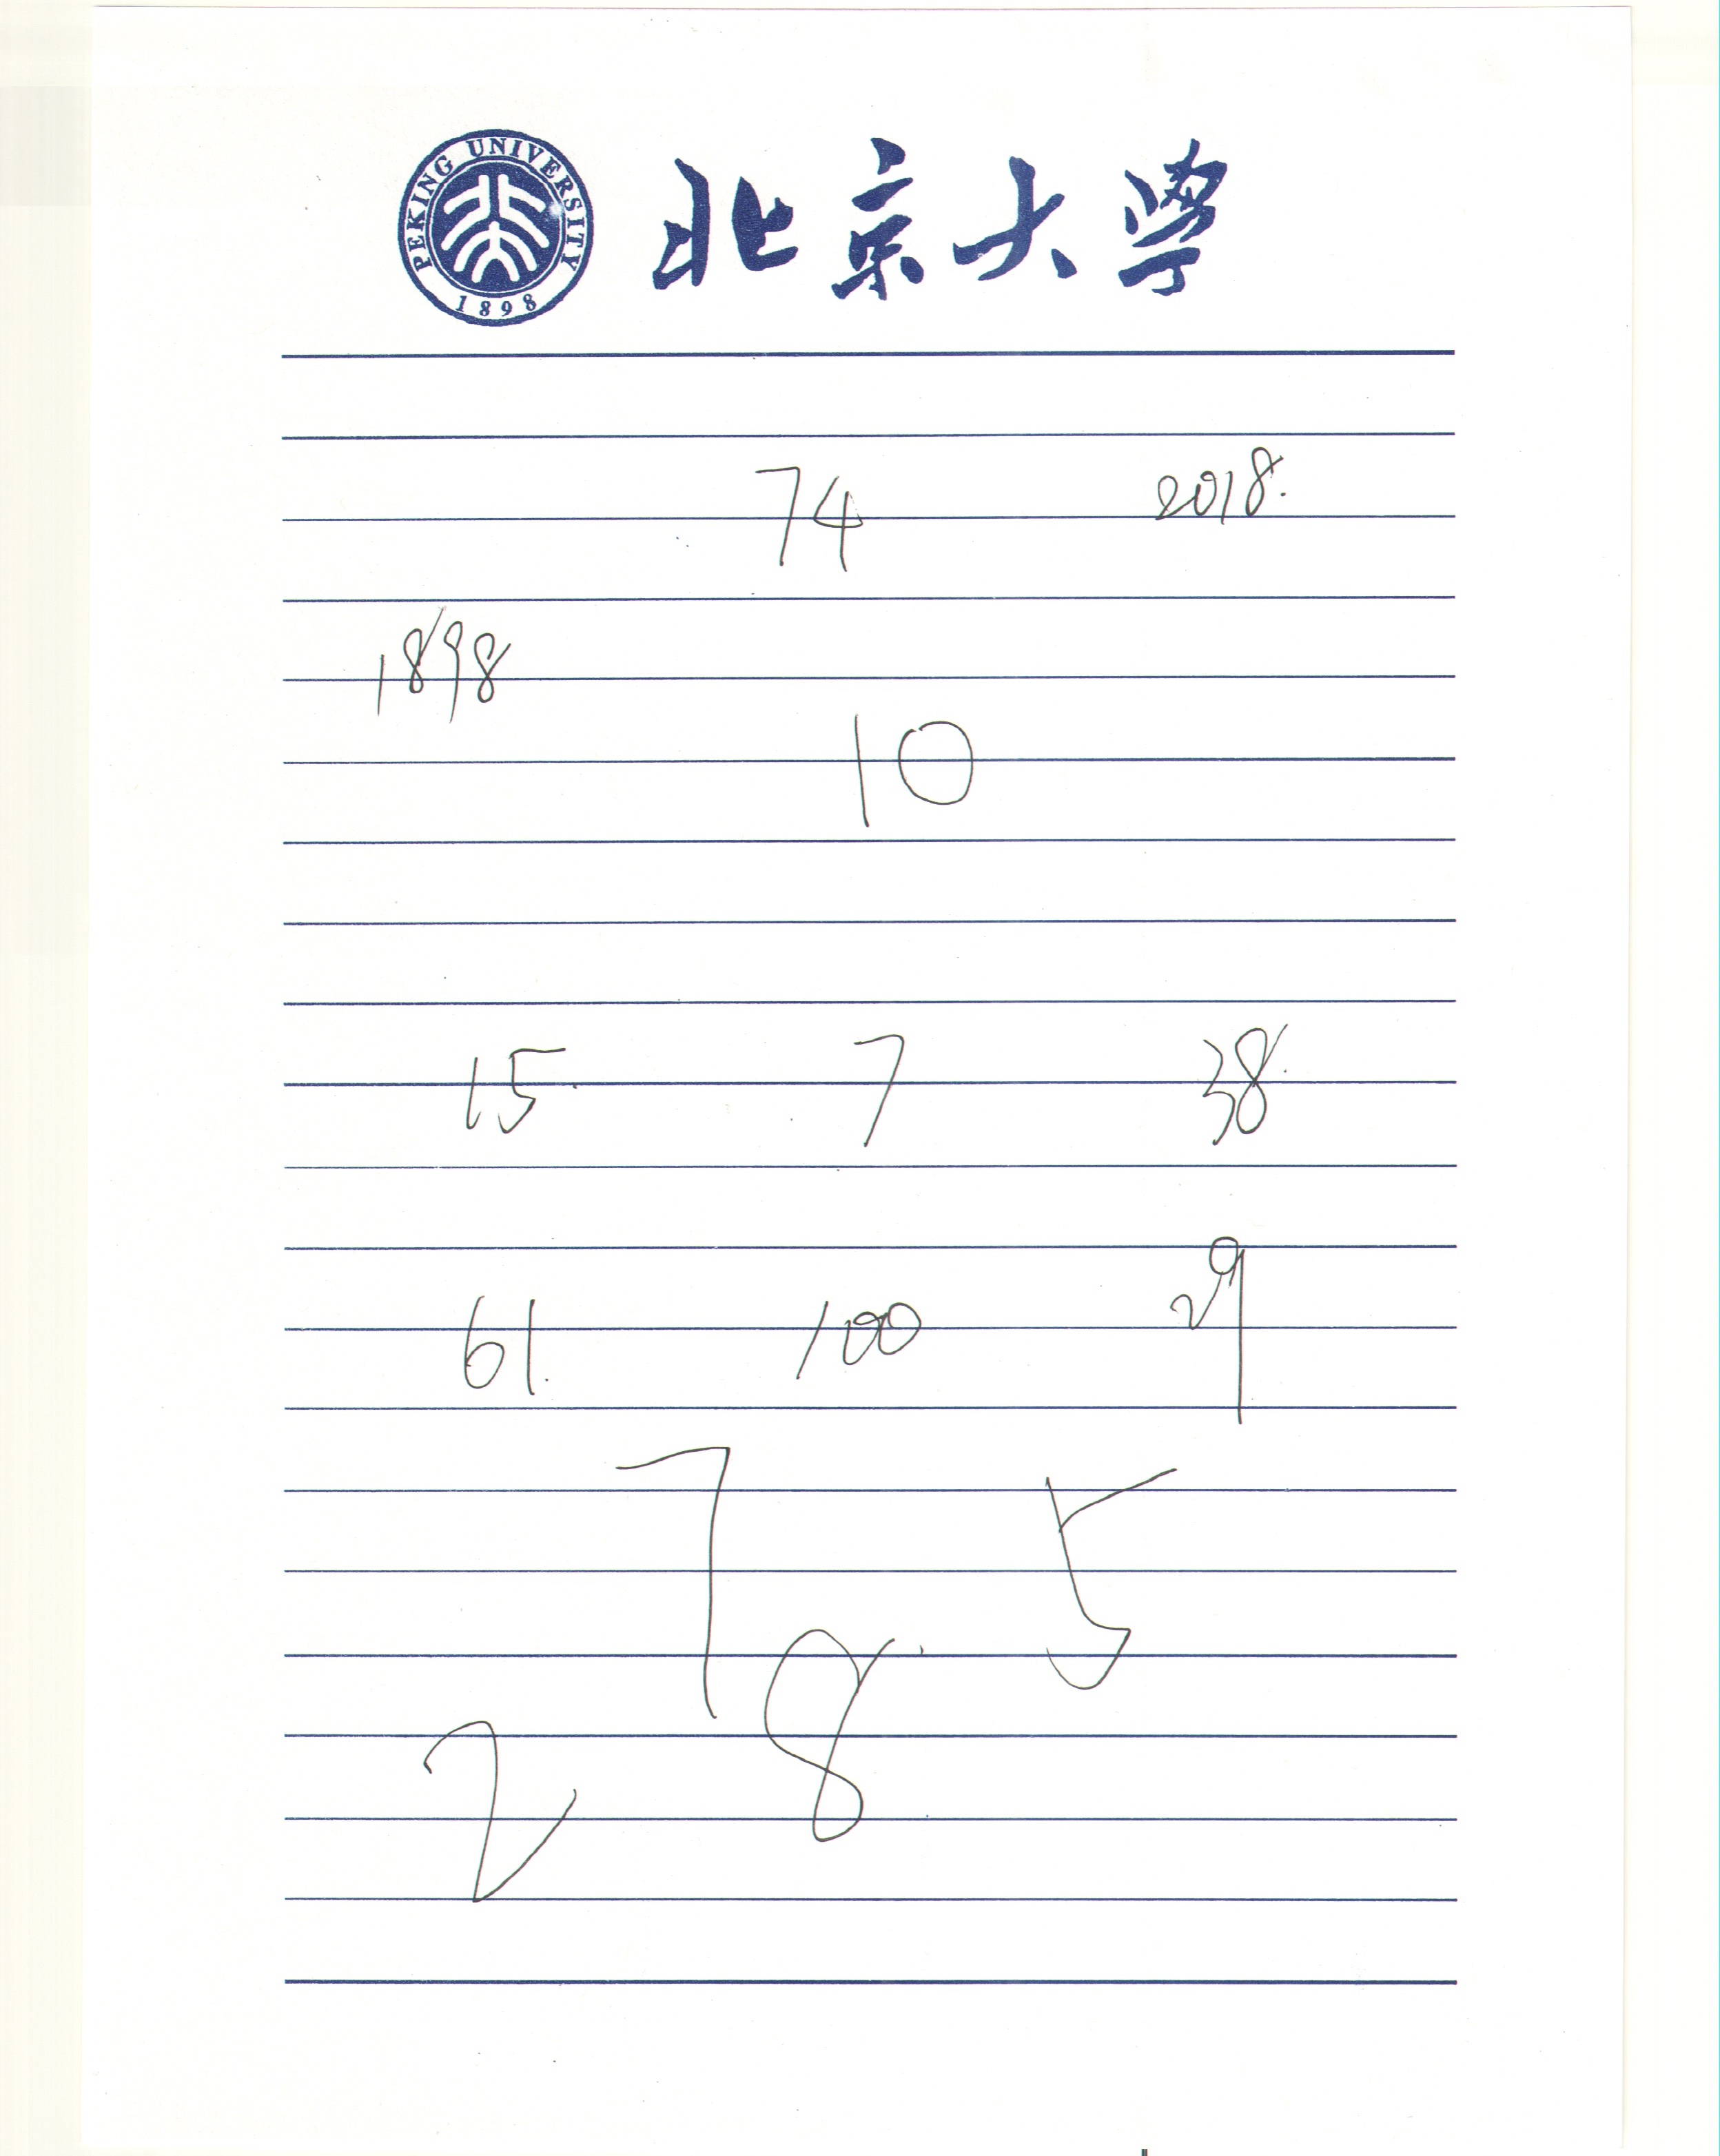 PEKING UNIVERSITY
1898
北京大學
74 2018.
1898
10
15 7 38
61. 100 29
7 5
8
2